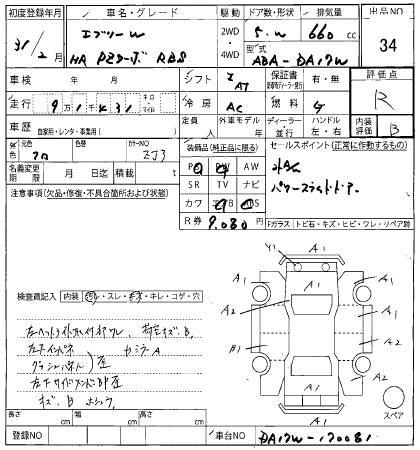 初度登録年月 車名・グレード 駆動 ドア数・形状 排気量 出品NO
31/2月 エブリーW 2WD・4WD 5・W 660cc 34
HR PZターボ RBS 型式 ABA-DA17W
車検 年 月 シフト AT 保証書 有・無 評価点
走行 9万1千431 キロ・マイル 冷房 AC 燃料 R
車歴 自家用・レンタ・事業用( ) 定員 人 外車モデル 年 ディーラー・並行 ハンドル 左・右 内装評価 B
色 元色 クロ 色替 カラーNO ZJ3 装備品(純正品に限る) セールスポイント(正常に作動するもの)
名義変更期限 年 月 日 積載 t PS PW AW
注意事項(欠品・修復・不具合箇所および状態) SR TV ナビ パワースライドドア
カワ エアB ABS
R券 9,080円 Fガラス トビ石・キズ・ヒビ・ワレ・リペア跡
検査員記入 内装 ヨゴレ・スレ・キズ・キレ・コゲ・穴
Y1 A1
A1 A1 A1
A2 A1
A1
A2
A1 A1
左ヘッドライト取付部ワレ 荷室キズB
左下インパネ カミラーA
クラシュパネル 歪
左下サイドメンバー凹 歪
キズ、凹 ようす
長さ cm 幅 cm 高さ cm スペア
登録NO 車台NO DA17W-170081